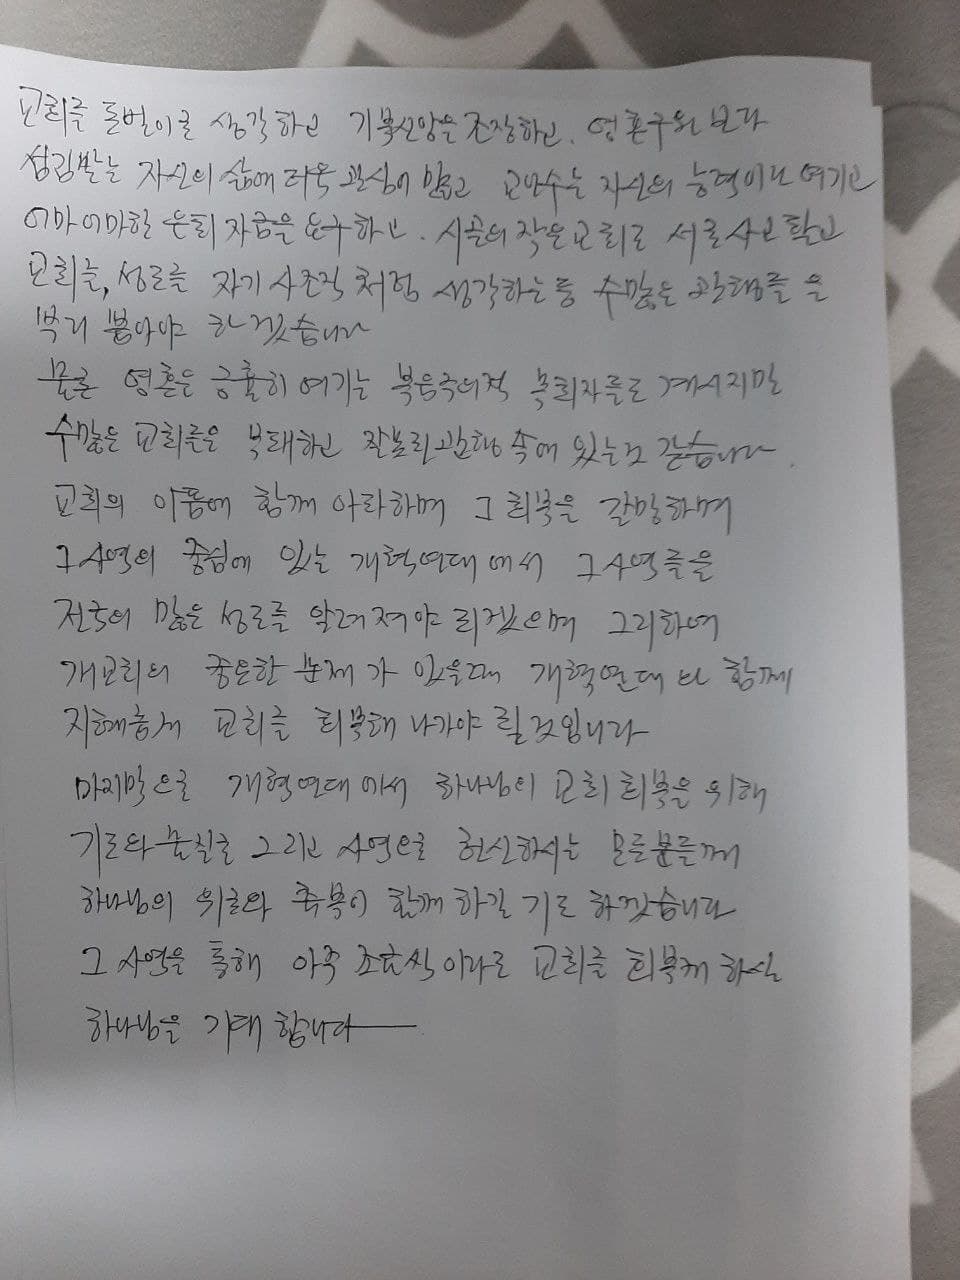 교회를 돈벌이로 생각하고 기복신앙을 조장하고. 영혼구원 보다
섬김받는 자신의 삶에 더욱 관심이 많고 교인수는 자신의 능력이나 여기고
어마어마한 은퇴 자금을 요구하고. 시골의 작은교회로 서로 사고 팔고
교회를, 성도를 자기 사조직 처럼 생각하는등 수많은 관행들을
뿌리 뽑아야 하겠습니다
물론 영혼을 긍휼히 여기는 복음주의적 목회자들도 계시지만
수많은 교회들은 부패하고 잘못된 관행 속에 있는것 같습니다.
교회의 아픔에 함께 아파하며 그 회복을 갈망하며
그 사역의 중심에 있는 개혁연대 에서 그 사역들을
전국의 많은 성도들 알려져야 되겠으며 그리하여
개교회의 중요한 문제가 있을때 개혁연대 와 함께
지혜롭게 교회를 회복해 나가야 될것입니다
마지막으로 개혁연대 에서 하나님의 교회 회복을 위해
기도와 물질로 그리고 사역으로 헌신하시는 모든분들께
하나님의 위로와 축복이 함께 하길 기도 하겠습니다
그 사역을 통해 아주 조금씩 이라도 교회를 회복케 하실
하나님을 기대 합니다